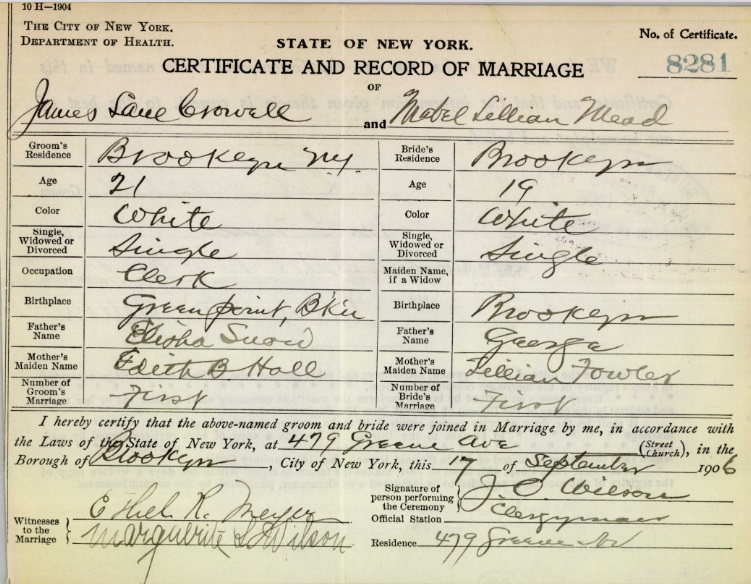 10 H—1904
THE CITY OF NEW YORK.
DEPARTMENT OF HEALTH.
STATE OF NEW YORK.
No. of Certificate.
8281
CERTIFICATE AND RECORD OF MARRIAGE
OF
James Lane Crowell and Mabel Lillian Mead
Groom's Residence Brooklyn N.Y. Bride's Residence Brooklyn
Age 21 Age 19
Color White Color White
Single, Widowed or Divorced Single Single, Widowed or Divorced Single
Occupation Clerk Maiden Name, if a Widow
Birthplace Greenpoint, Bkn Birthplace Brooklyn
Father's Name Elisha Snow Father's Name George
Mother's Maiden Name Edith B Hall Mother's Maiden Name Lillian Fowler
Number of Groom's Marriage First Number of Bride's Marriage First
I hereby certify that the above-named groom and bride were joined in Marriage by me, in accordance with
the Laws of the State of New York, at 479 Greene Ave (Street Church), in the
Borough of Brooklyn, City of New York, this 17 of September 1906
Signature of person performing the Ceremony J. O Wilson
Official Station Clergyman
Witnesses to the Marriage Ethel R.
Marguerite Wilson
Residence 479 Greene Av